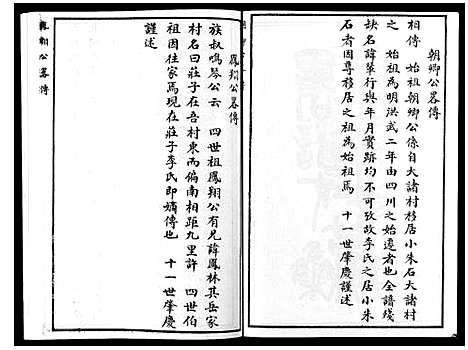 朝卿公畧傳
相傳 始祖朝卿公係自大諸村移居小朱石大諸村
之 始祖為明洪武二年由四川之始遷者也全譜殘
缺名諱輩行與年月實跡均不可攷故李氏之居小朱
石者因尊移居之祖為始祖焉 十一世肇慶謹述
鳳翔公畧傳
族叔鳴琴公云 四世祖鳳翔公有兄諱鳳林其岳家
村名曰莊子在吾村東而偏南相距九里許 四世伯
祖因往家焉現在莊子李氏即嫡傳也 十一世肇慶
謹述
鳳翔公畧傳